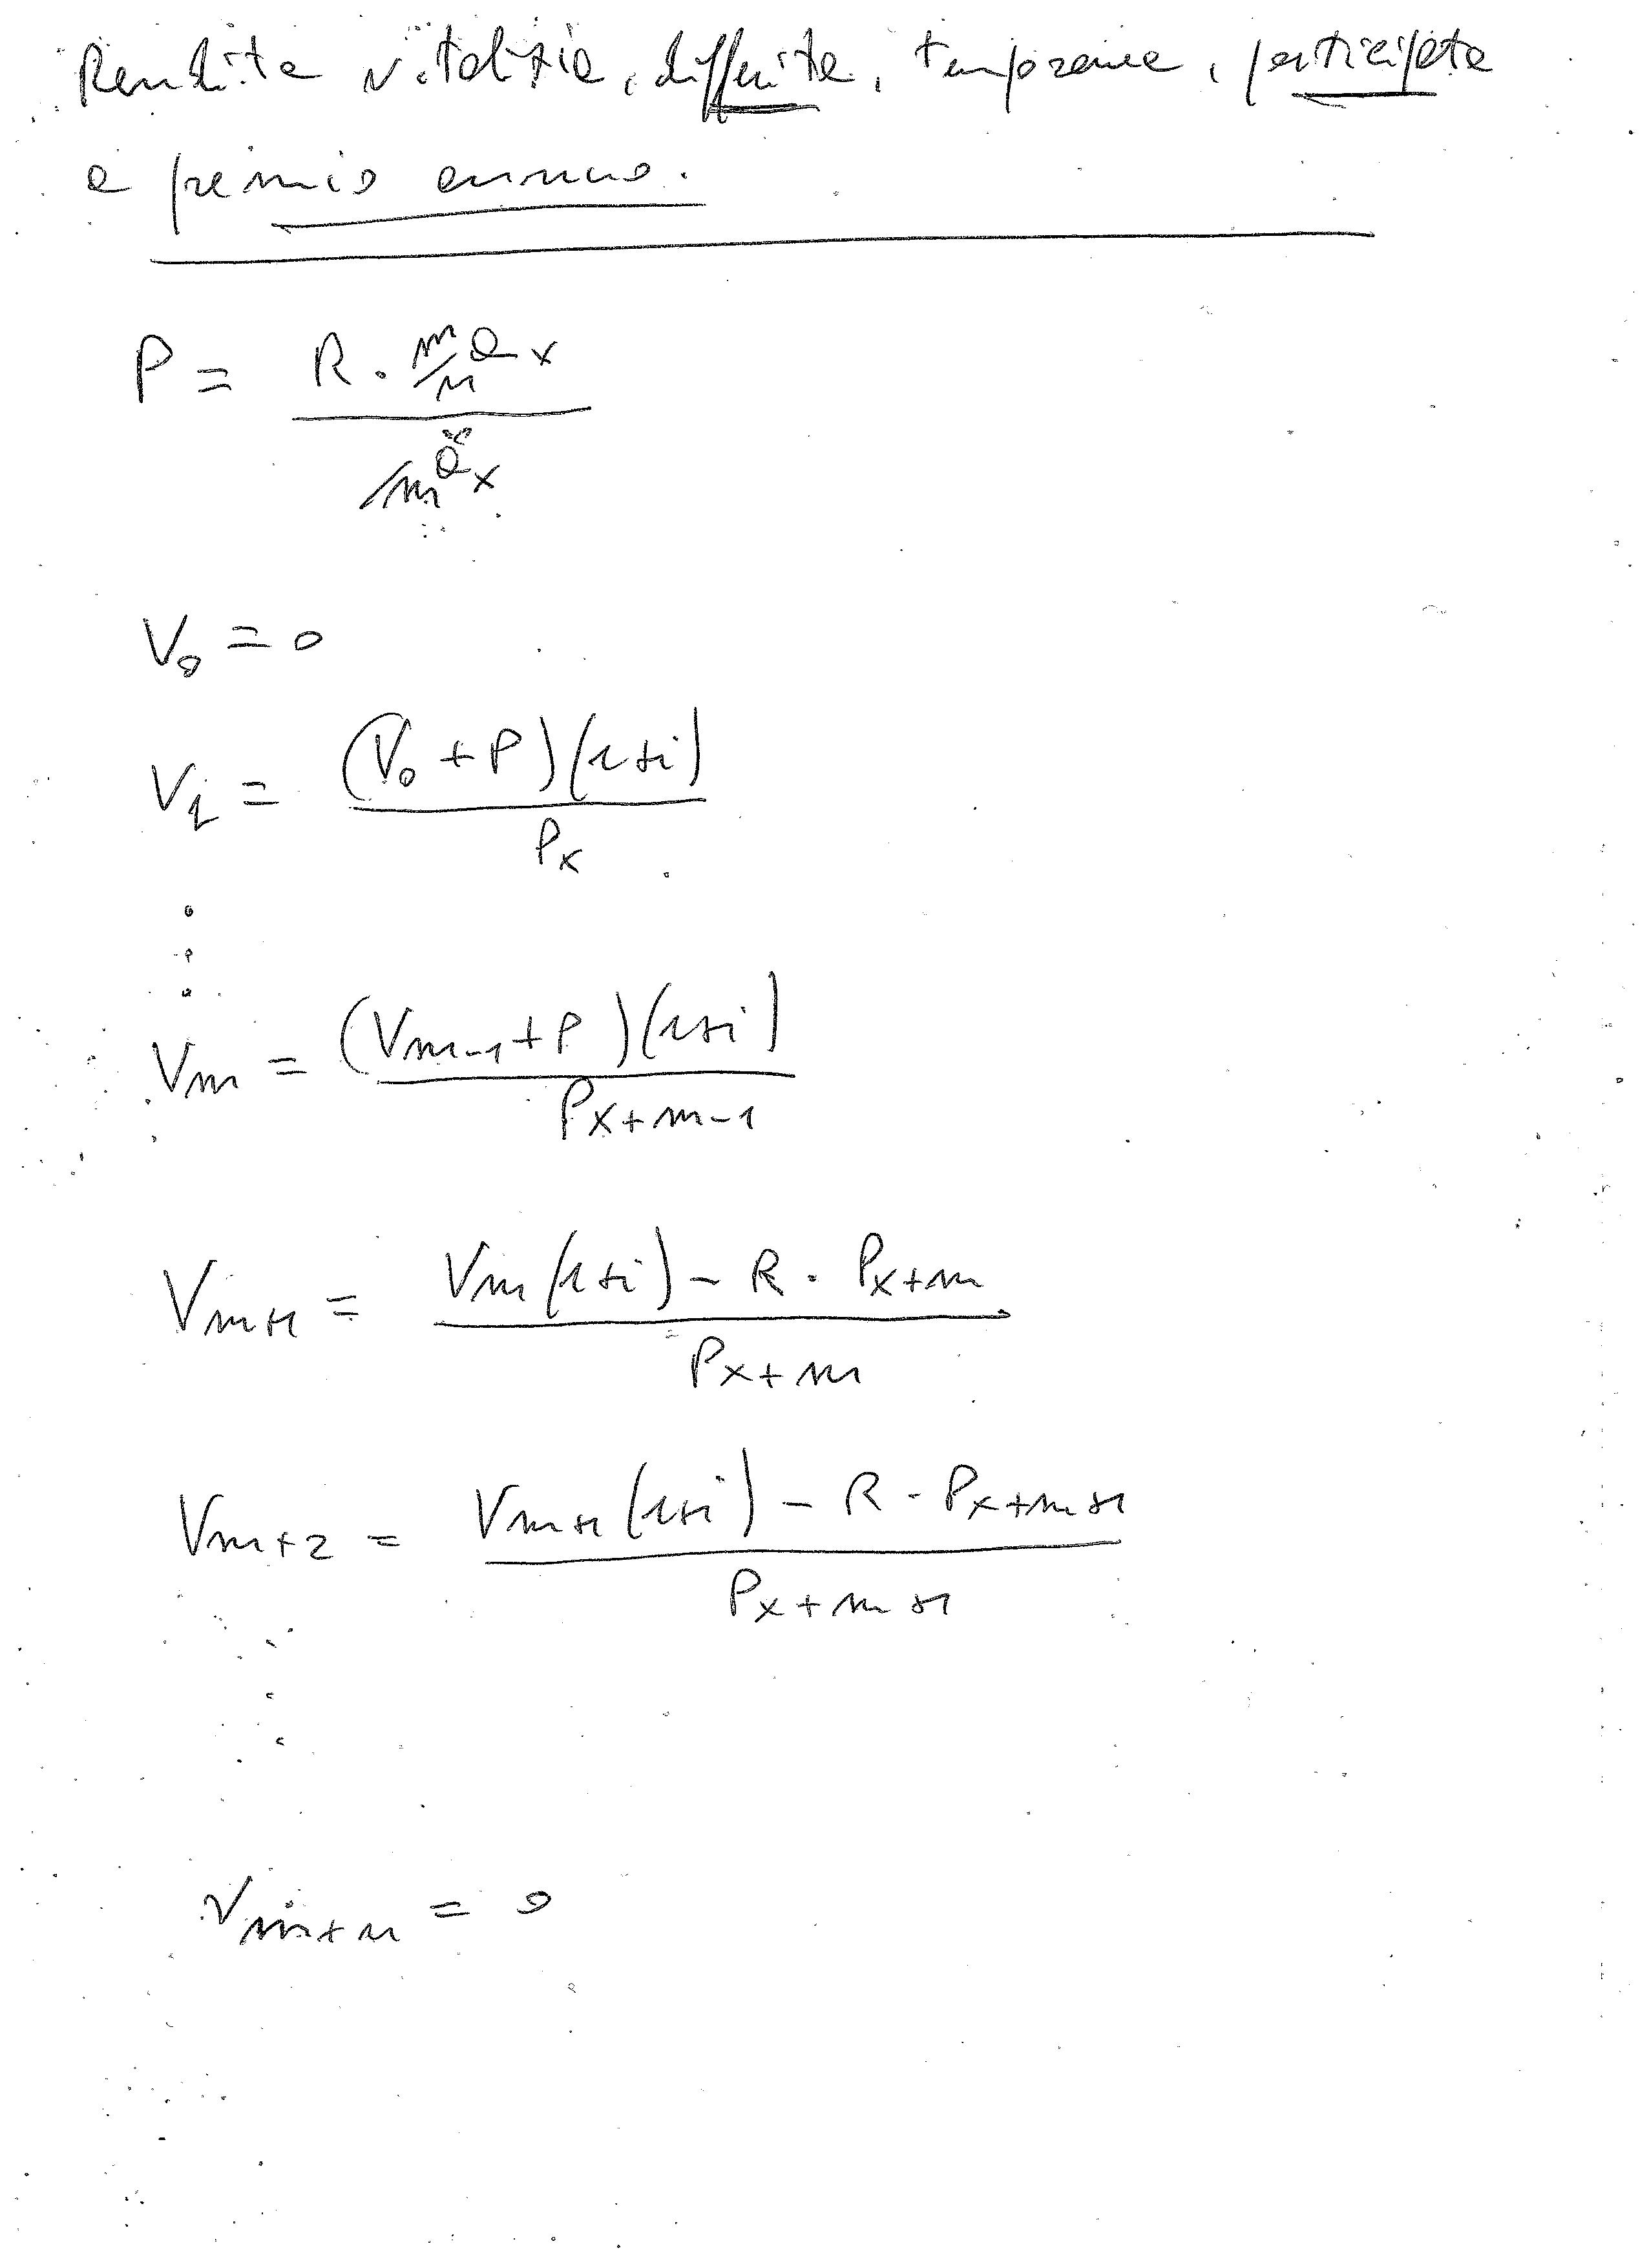 Rendita vitalizia, differita, temporanea, posticipata
a premio annuo.
P = R · m/n a x
/m ä x
V0 = 0
V1 = (V0 + P)(1+i)
Px
Vm = (Vm-1 + P)(1+i)
Px+m-1
Vm+1 = Vm(1+i) - R · Px+m
Px+m
Vm+2 = Vm+1(1+i) - R · Px+m+1
Px+m+1
Vm+n = 0